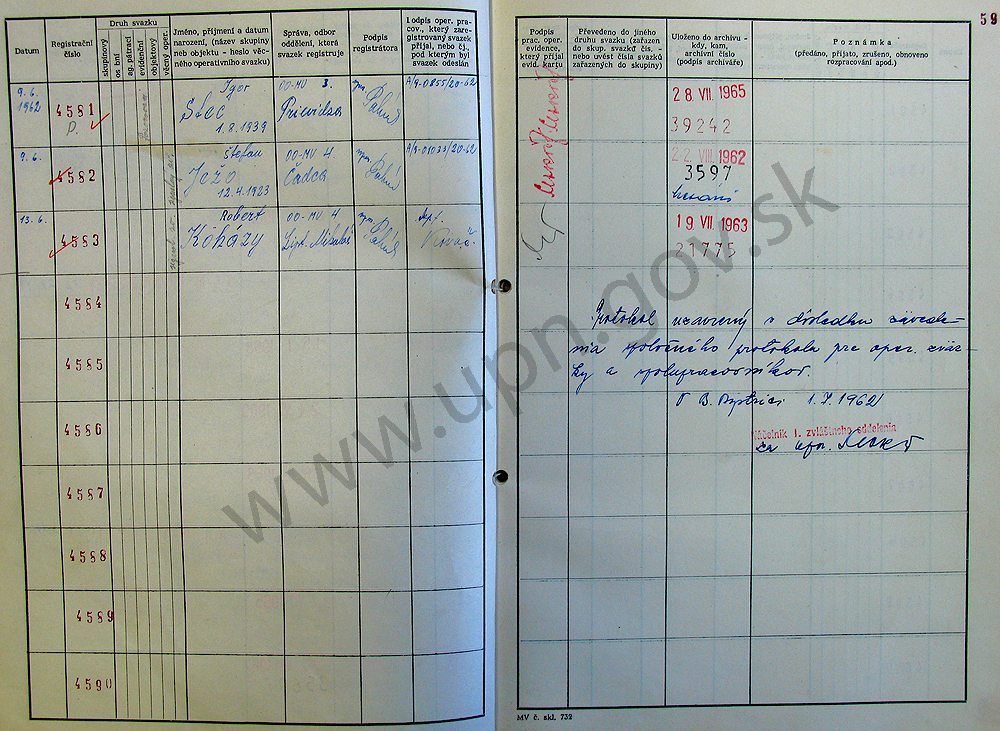 59
Datum
Registrační číslo
Druh svazku
skupinový
osobní
ag. pátrací
evidenční
objektový
věcný oper.
Jméno, příjmení a datum
narození, (název skupiny
neb objektu - heslo věc-
ného operativního svazku)
Správa, odbor
oddělení, která
svazek registruje
Podpis
registrátora
Podpis oper. pra-
cov., který zare-
gistrovaný svazek
přijal, nebo čj.,
pod kterým byl
svazek odeslán
Podpis
prac. oper.
evidence,
který přijal
evid. kartu
Převedeno do jiného
druhu svazku (zařazen
do skup. svazků čís. -
nebo uvést čísla svazků
zařazených do skupiny)
Uloženo do archivu -
kdy, kam,
archivní číslo
(podpis archiváře)
Poznámka
(předáno, přijato, zrušeno, obnoveno
rozpracování apod.)
9.6.
1962
4581
D.
Igor
1.8.1939
OO-MV 3.
Prievidza
A/9-0855/20-62
28 VII. 1965
39242
9.6.
4582
Štefan
Ježo
12.4.1923
OO-MV 4.
Čadca
A/9-01033/20-62
22 VIII. 1962
3597
13.6.
4583
Robert
Koházy
OO-MV 4
Lipt. Mikuláš
19 VII. 1963
21775
4584
4585
4586
4587
4588
4589
4590
Protokol uzavrený v dôsledku zavede-
nia spoločného protokola pre oper. zväz-
ky a spolupracovníkov.
V B. Bystrici 1.7.1962
Náčelník I. zvláštneho oddelenia
MV č. skl. 732
www.upn.gov.sk